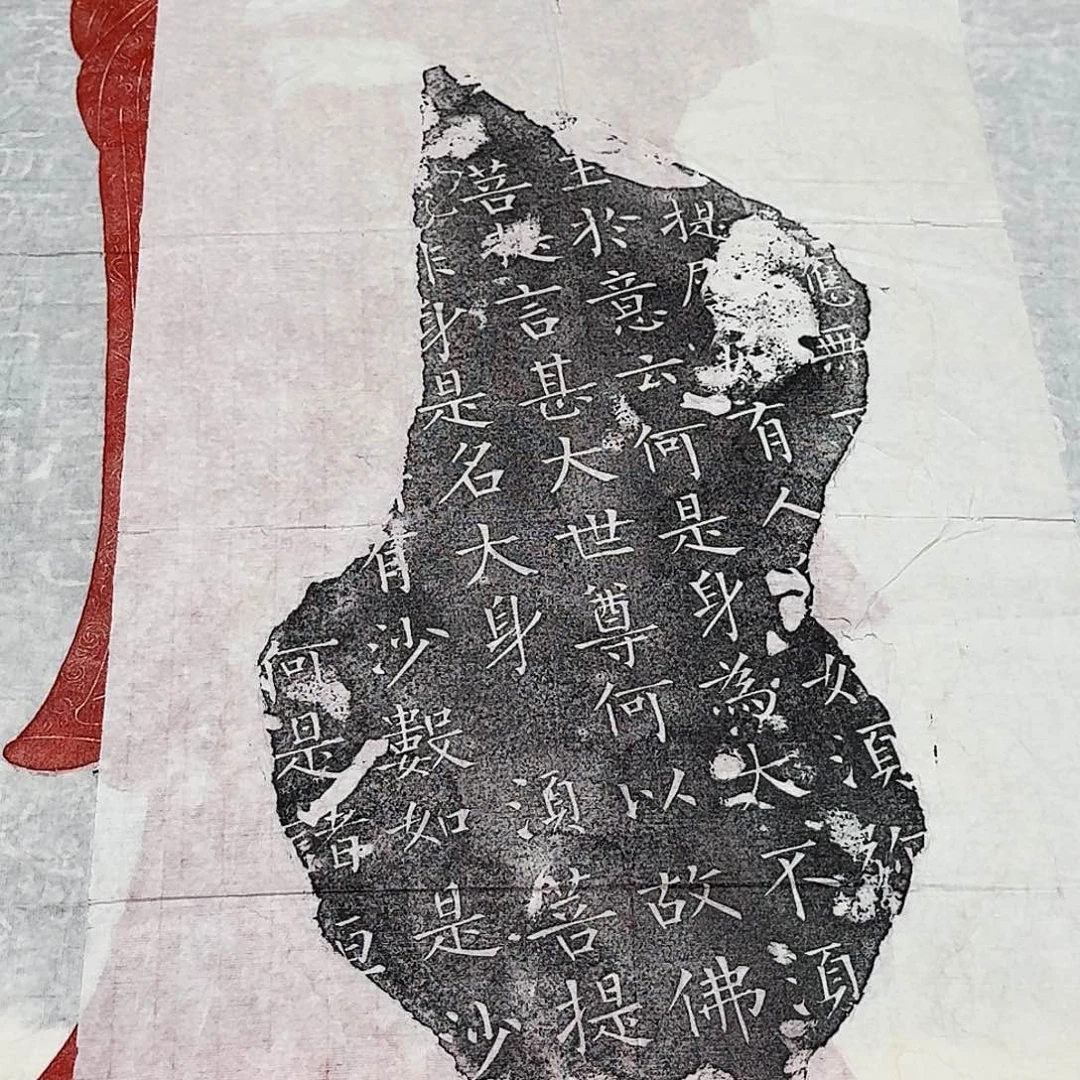 無一
提有人如須彌
王於意云何是身為大不須
菩提言甚大世尊何以故佛
非身是名大身須菩提
有沙數如是沙
何是諸恒